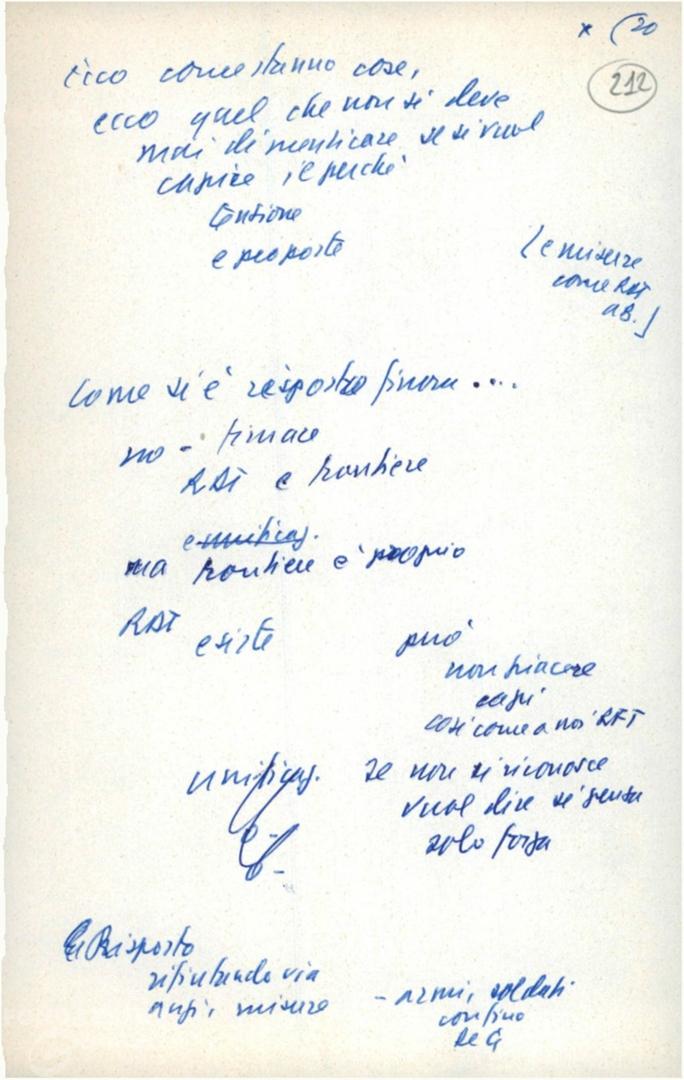 x (20
212
Ecco come stanno cose,
ecco quel che non si deve
mai dimenticare se si vuol
capire il perché
tensione
e proposte
[e misure
come RDT
aB.]
Come si è risposto finora ....
no - firmare
RDT e frontiere
e unificaz.
ma frontiere è proprio
RDT
esiste
può
non piacere
così come a noi RFT
unificaz.
se non si riconosce
vuol dire si pensa
solo forza
Risposto
rifiutando via
anzi, misure
- armi, soldati
confino
De G